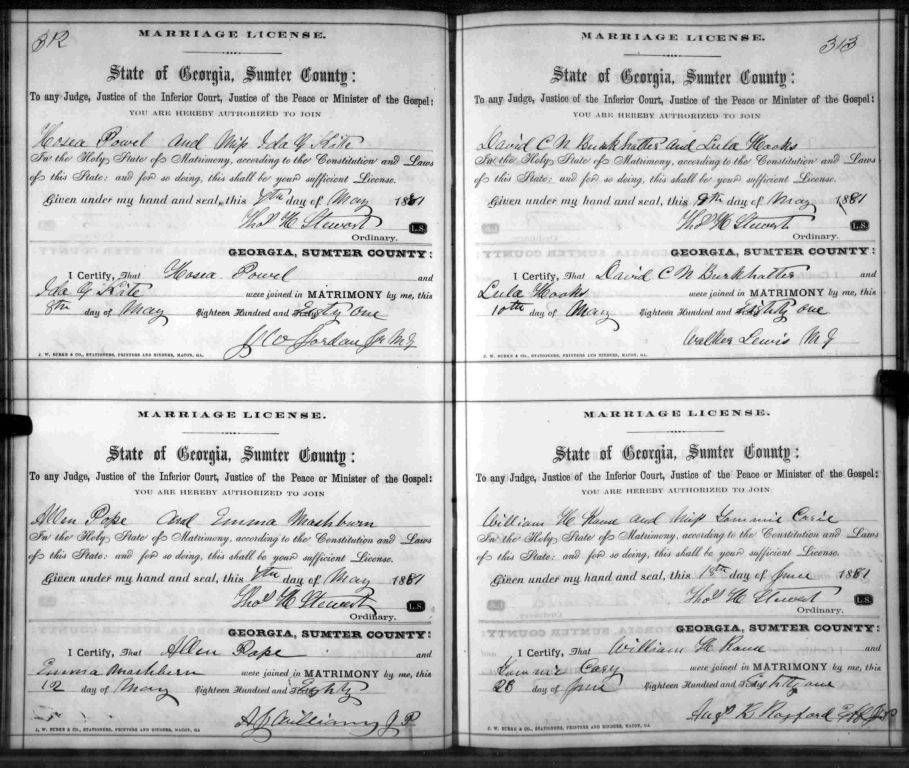 312
MARRIAGE LICENSE.
State of Georgia, Sumter County:
To any Judge, Justice of the Inferior Court, Justice of the Peace or Minister of the Gospel:
YOU ARE HEREBY AUTHORIZED TO JOIN
Hosea Powel and Miss Ida G Kite
In the Holy State of Matrimony, according to the Constitution and Laws
of this State: and for so doing, this shall be your sufficient License.
Given under my hand and seal, this 7th day of May 1881
Thos H Stewart L.S.
Ordinary.
GEORGIA, SUMTER COUNTY:
I Certify, That Hosea Powel and
Ida G Kite were joined in MATRIMONY by me, this
8th day of May Eighteen Hundred and Eighty one
J W Jordan Jr M G
J. W. BURKE & CO., STATIONERS, PRINTERS AND BINDERS, MACON, GA.
MARRIAGE LICENSE.
State of Georgia, Sumter County:
To any Judge, Justice of the Inferior Court, Justice of the Peace or Minister of the Gospel:
YOU ARE HEREBY AUTHORIZED TO JOIN
Allen Pope and Emma Mashburn
In the Holy State of Matrimony, according to the Constitution and Laws
of this State: and for so doing, this shall be your sufficient License.
Given under my hand and seal, this 7th day of May 1881
Thos H Stewart L.S.
Ordinary.
GEORGIA, SUMTER COUNTY:
I Certify, That Allen Pope and
Emma Mashburn were joined in MATRIMONY by me, this
12 day of May Eighteen Hundred and Eighty
A J Williams J P
J. W. BURKE & CO., STATIONERS, PRINTERS AND BINDERS, MACON, GA.
313
MARRIAGE LICENSE.
State of Georgia, Sumter County:
To any Judge, Justice of the Inferior Court, Justice of the Peace or Minister of the Gospel:
YOU ARE HEREBY AUTHORIZED TO JOIN
David C N Burkhalter and Lula Hooks
In the Holy State of Matrimony, according to the Constitution and Laws
of this State: and for so doing, this shall be your sufficient License.
Given under my hand and seal, this 9th day of May 1881
Thos H Stewart L.S.
Ordinary.
GEORGIA, SUMTER COUNTY:
I Certify, That David C N Burkhalter and
Lula Hooks were joined in MATRIMONY by me, this
10th day of May Eighteen Hundred and Eighty one
Walker Lewis M G
J. W. BURKE & CO., STATIONERS, PRINTERS AND BINDERS, MACON, GA.
MARRIAGE LICENSE.
State of Georgia, Sumter County:
To any Judge, Justice of the Inferior Court, Justice of the Peace or Minister of the Gospel:
YOU ARE HEREBY AUTHORIZED TO JOIN
William H and Miss Tommie
In the Holy State of Matrimony, according to the Constitution and Laws
of this State: and for so doing, this shall be your sufficient License.
Given under my hand and seal, this day of June 1881
Thos H Stewart L.S.
Ordinary.
GEORGIA, SUMTER COUNTY:
I Certify, That William H and
Tommie Cary were joined in MATRIMONY by me, this
23 day of June Eighteen Hundred and Eighty one
J. W. BURKE & CO., STATIONERS, PRINTERS AND BINDERS, MACON, GA.